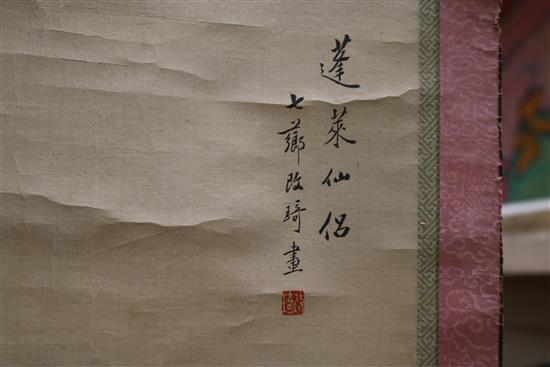 蓬萊仙侶
七薌改琦畫